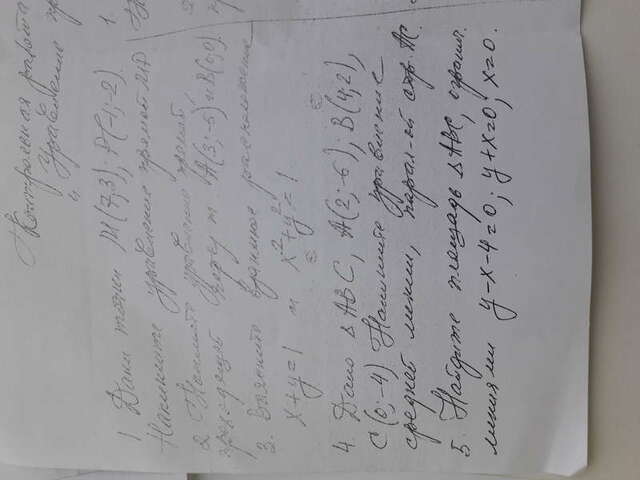 Контрольная работа
"Уравнение
1 Дани точки М(7;3); Р(-1;-2).
Напишите уравнение прямой МР
2 Напишите уравнение прямой,
проходящей через т. А(3;-5) и В(0;0)
3. Выясните взаимное расположение
x+y=1 и x²+y²=1
4. Дано ΔABC, A(2;-6); B(4;2),
C(0;-4) Напишите уравнение
средней линии, парал-ой стр. АС.
5. Найдите площадь ΔАВС, огранич.
линиями y-x-4=0; y+x=0; x=0.
1.